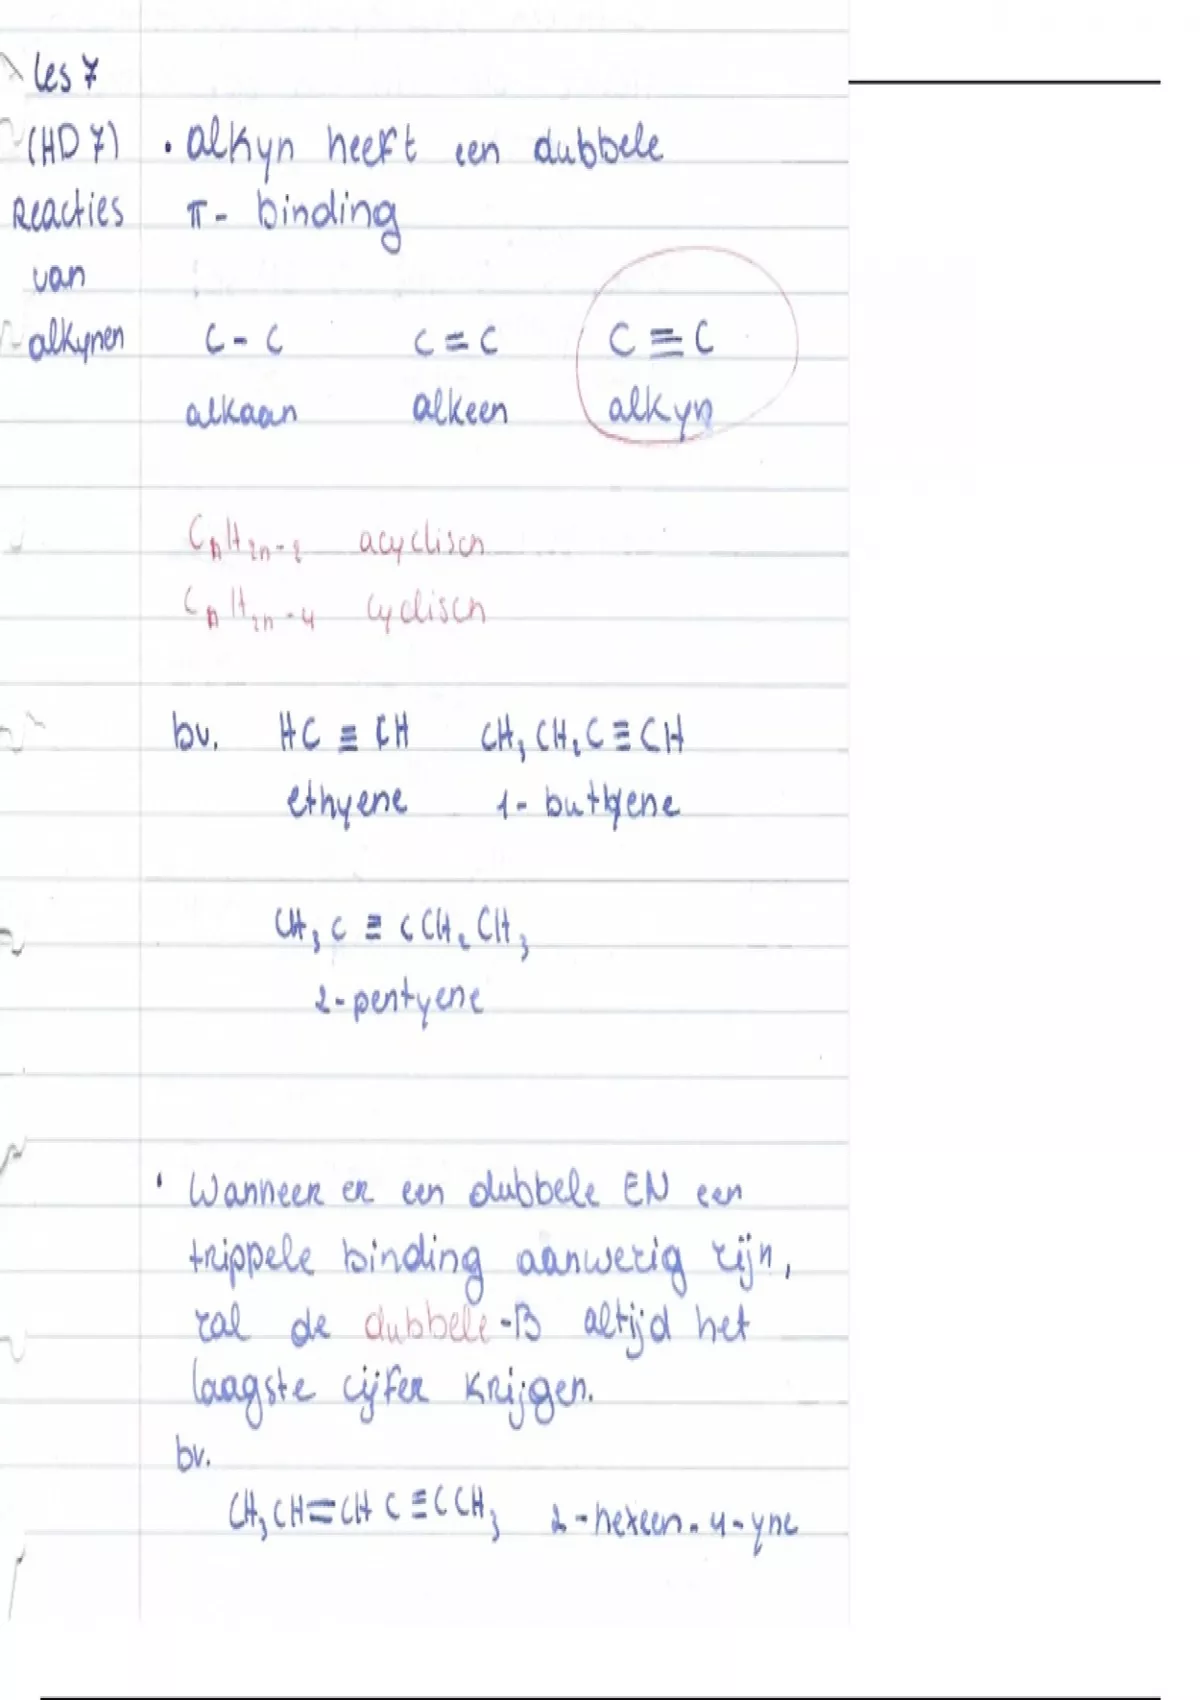 les 7
(HD7)
Reacties
van
alkynen
• alkyn heeft een dubbele
π- binding
C - C   C = C   C ≡ C
alkaan   alkeen   alkyn
CnH2n-2 acyclisch
CnH2n-4 cyclisch
bv. HC ≡ CH   CH3CH2C≡CH
ethyene   1- butyene
CH3C ≡ CCH2CH3
2-pentyene
• Wanneer er een dubbele EN een
trippele binding aanwezig zijn,
zal de dubbele-B altijd het
laagste cijfer krijgen.
bv.
CH3CH=CHC≡CCH3   2-hexeen-4-yne